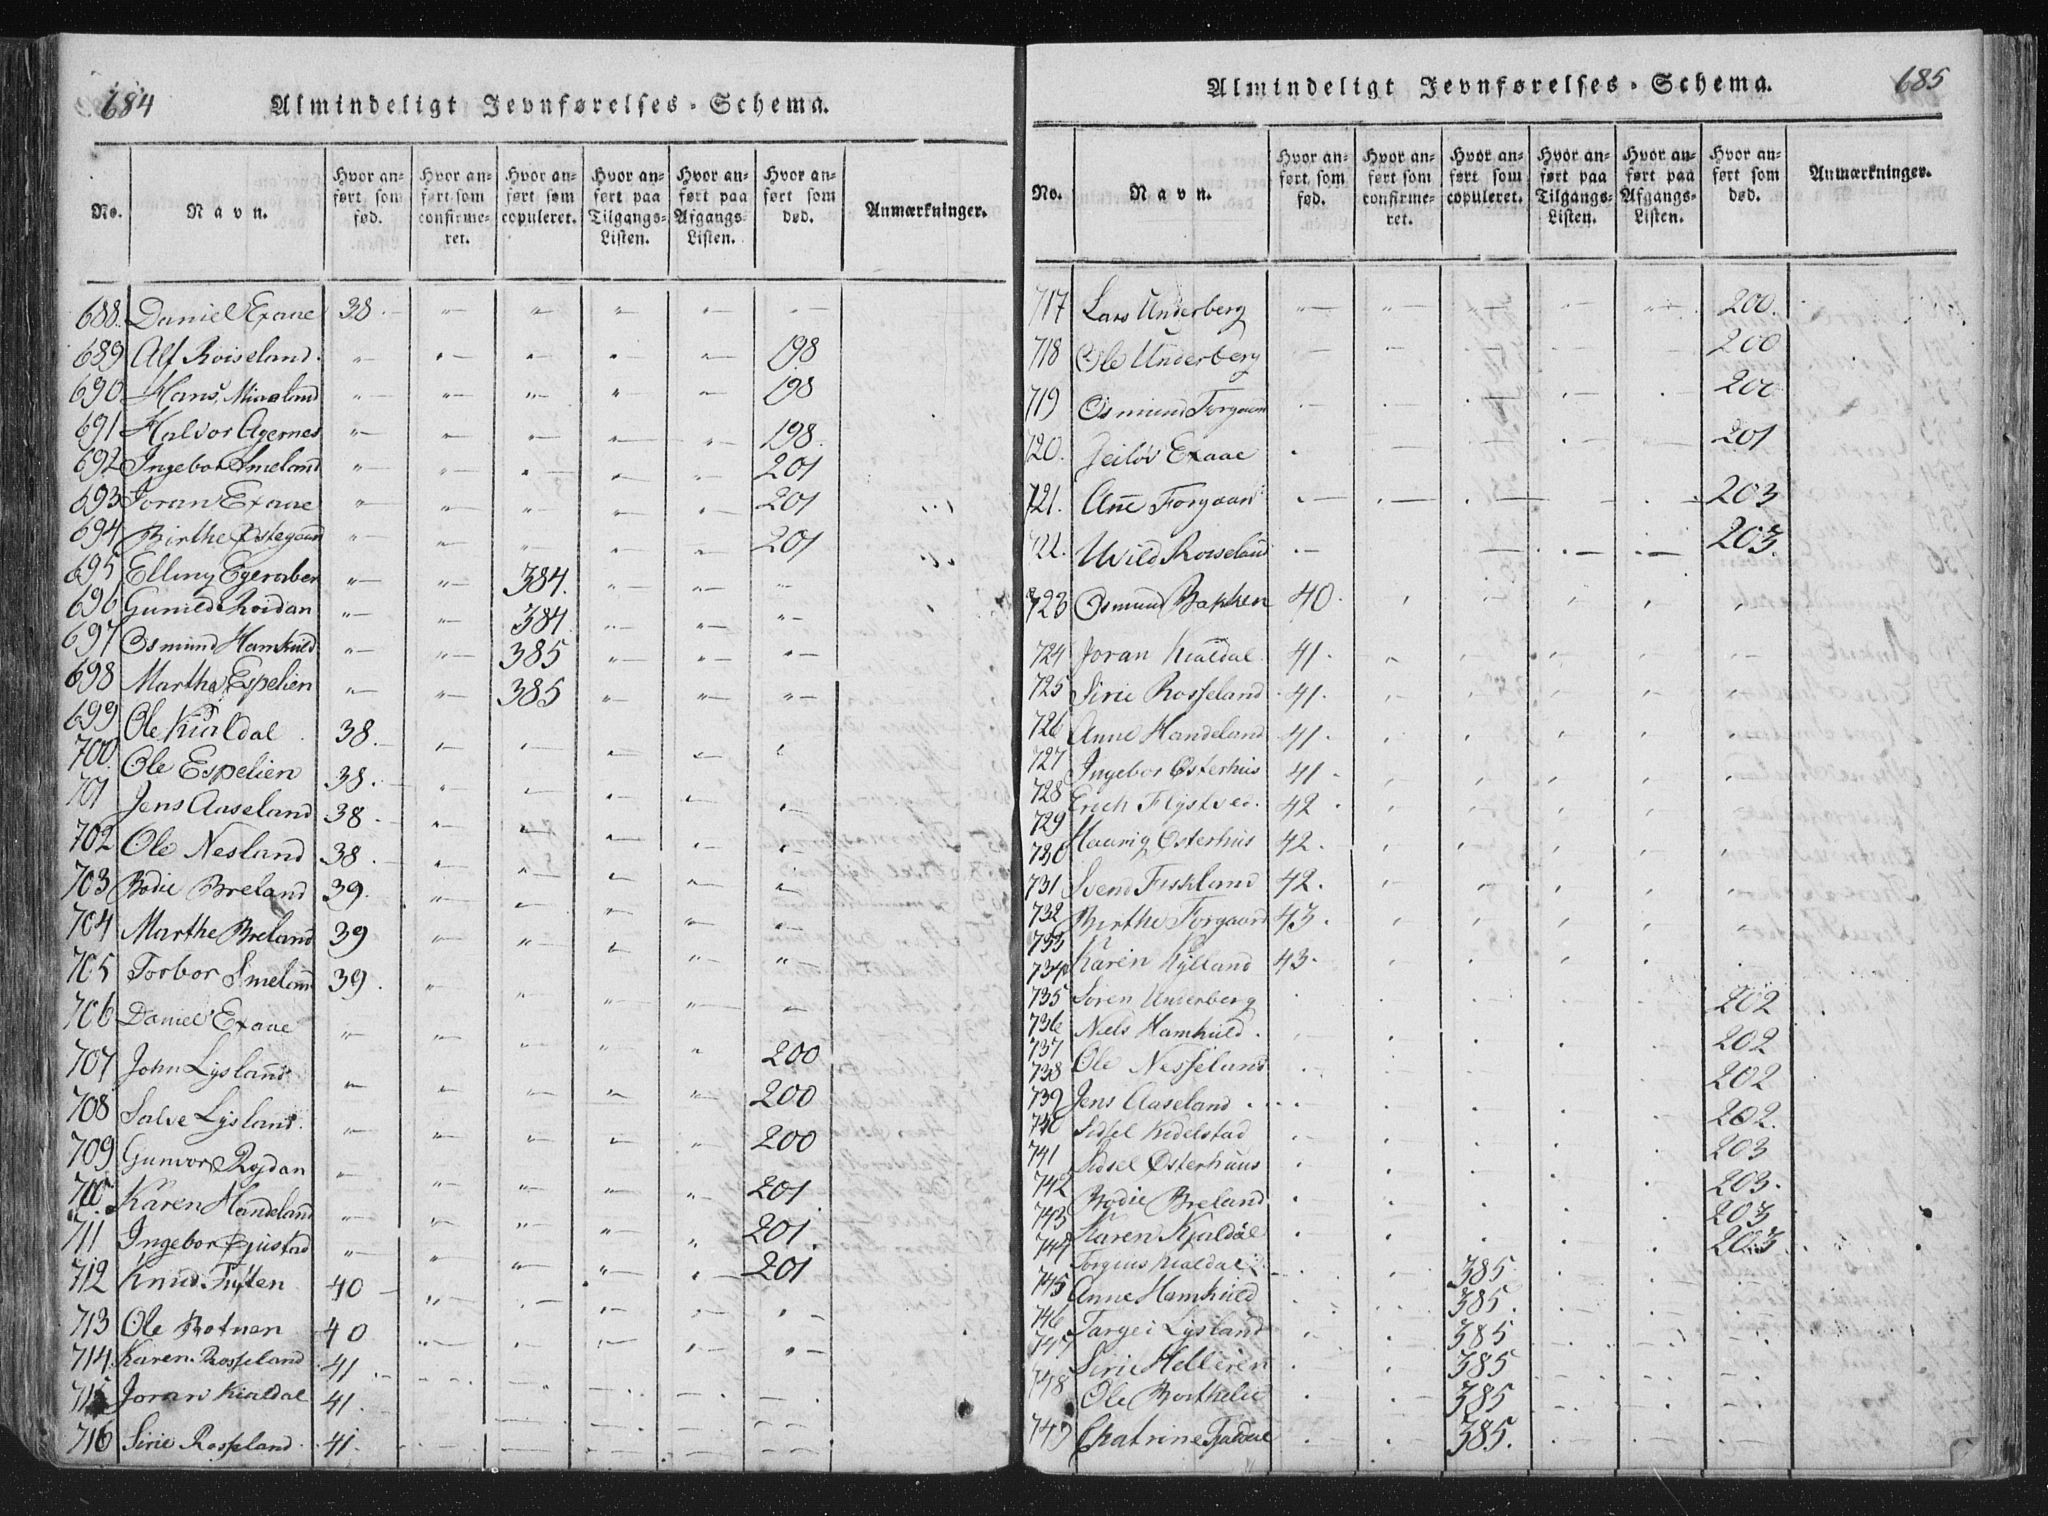 684
Almindeligt Jevnførelses-Schema.
No. | Navn. | Hvor anført som fød. | Hvor anført som confirmeret. | Hvor anført som copuleret. | Hvor anført paa Tilgangs-Listen. | Hvor anført paa Afgangs-Listen. | Hvor anført som død. | Anmærkninger.
688. Daniel Exaae 38.
689 Alf Roiseland. 198
690 Hans 198
691 Halvor Agernes 198.
692 Ingebor Smeland 201
693 Joran Exaae 201
694 Birthe Østegaard 201
695 Elling 384.
696 Gunild Roidan 384
697 Osmund Hamkuld 385
698 Marthe Espelien 385
699 Ole Kialdal 38.
700 Ole Espelien 38.
701 Jens Aaseland 38
702 Ole Nesland 38
703 Bodie Breland 39.
704 Marthe Breland 39
705 Torbor Smeland 39.
706 Daniel Exaae
707 John Lysland 200
708 Salve Lysland 200
709 Gunvor Rojdan 200
710 Karen Handeland 201
711 Ingebor 201.
712 Knud 40 201
713 Ole 40
714 Karen Rosseland 41
715 Joran Kialdal 41.
716 Sirie Rosseland. 41
685
Almindeligt Jevnførelses-Schema.
No. | Navn. | Hvor anført som fød. | Hvor anført som confirmeret. | Hvor anført som copuleret. | Hvor anført paa Tilgangs-Listen. | Hvor anført paa Afgangs-Listen. | Hvor anført som død. | Anmærkninger.
717 Lars Underberg 200.
718 Ole Underberg 200
719 Osmund Forgaan 200
720. Exaae 201
721. Ane Forgaan 203
722. Uvild Roiseland 203.
723 Osmund Bakken 40.
724 Joran Kialdal. 41.
725 Sirie Rosseland 41.
726 Anne Handeland 41.
727 Ingebor Østerhus 41
728 Erich 42
729
730 Haavrig Østerhus 42.
731 Svend Fiskland 42.
732 Birthe Forgaard 43.
733
734 Karen Kylland 43.
735 Søren Underberg 202
736 Niels Hamkuld. 202
737 Ole Nesseland 202
738
739 Jens Aaseland 202.
740 Sidsel Kedelstad 203
741 Sidsel Østerhuus 203.
742 Bodie Breland 203
743 Karen Kjaldal 203
744 Torgius Kialdal 385
745 Anne Hamkuld 385.
746 Targei Lysland 385
747 Sirie Helleren 385
748 Ole 385
749 Chatrine 385.